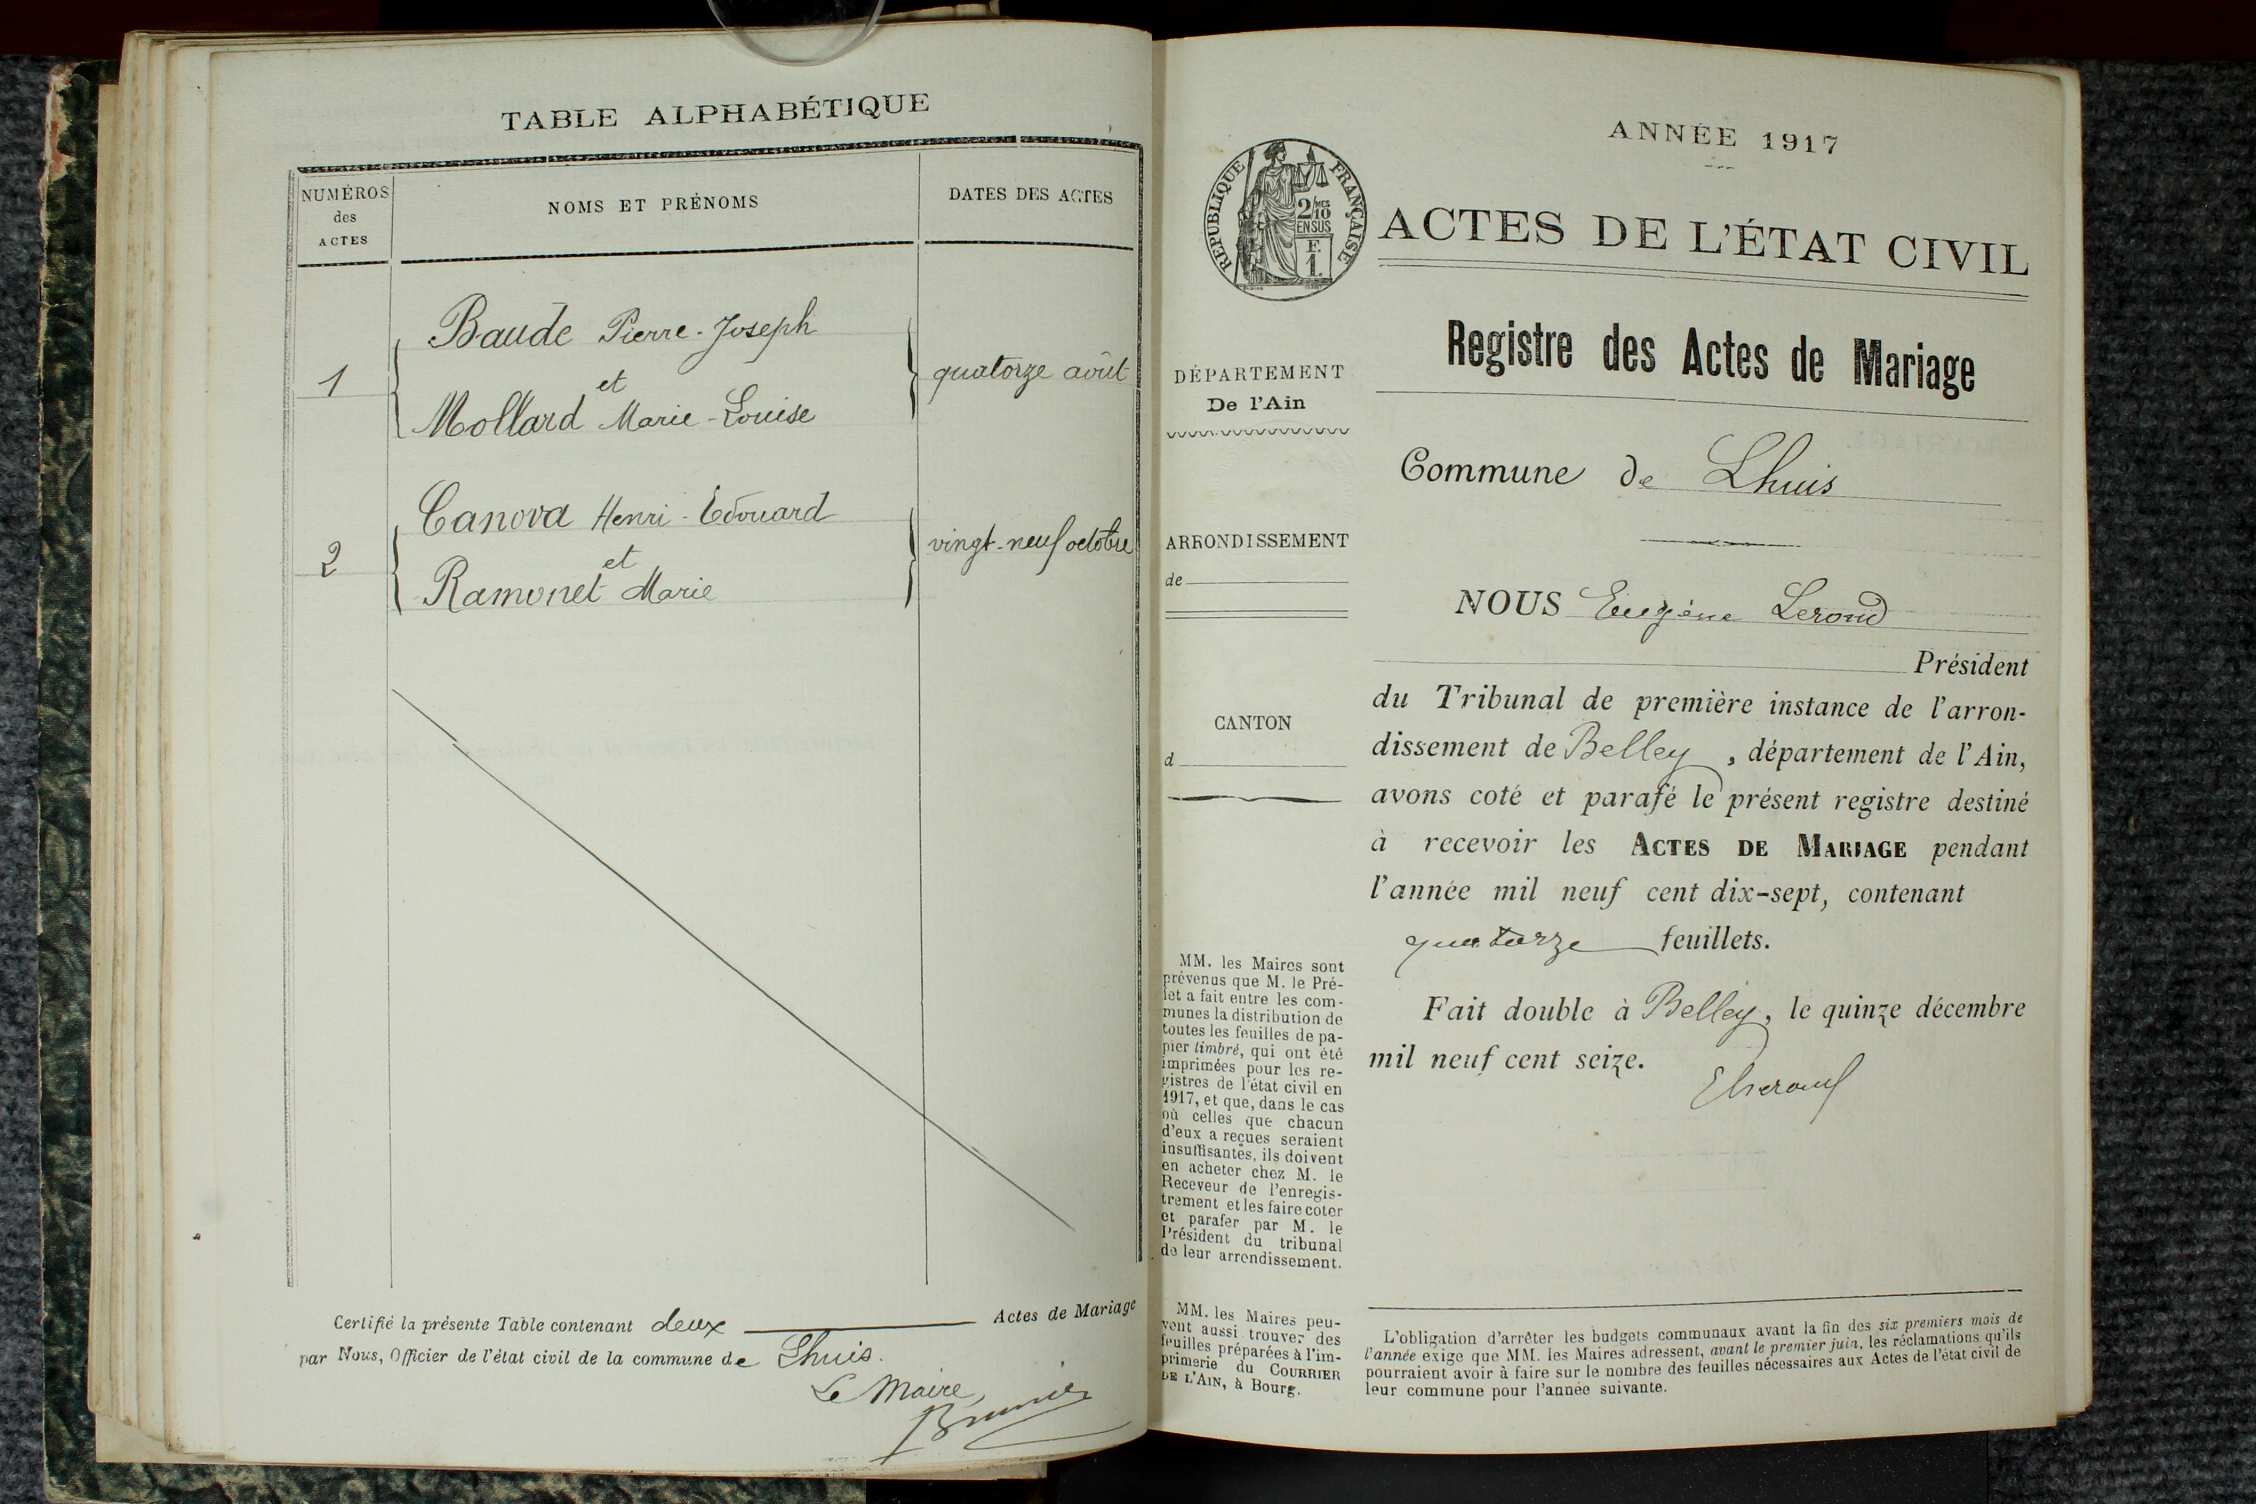 TABLE ALPHABÉTIQUE
NUMÉROS
des
ACTES
NOMS ET PRÉNOMS
DATES DES ACTES
1
Baude Pierre-Joseph
et
Mollard Marie-Louise
quatorze août
2
Canova Henri-Edouard
et
Ramonet Marie
vingt-neuf octobre
Certifié la présente Table contenant deux Actes de Mariage
par Nous, Officier de l'état civil de la commune de Lhuis.
Le Maire,
ANNÉE 1917
RÉPUBLIQUE FRANÇAISE
2/10 MES
EN SUS
F.
1.
ACTES DE L'ÉTAT CIVIL
Registre des Actes de Mariage
DÉPARTEMENT
De l'Ain
ARRONDISSEMENT
de
CANTON
d
MM. les Maires sont
prévenus que M. le Pré-
fet a fait entre les com-
munes la distribution de
toutes les feuilles de pa-
pier timbré, qui ont été
imprimées pour les re-
gistres de l'état civil en
1917, et que, dans le cas
où celles que chacun
d'eux a reçues seraient
insuffisantes, ils doivent
en acheter chez M. le
Receveur de l'enregis-
trement et les faire coter
et parafer par M. le
Président du tribunal
de leur arrondissement.
MM. les Maires peu-
vent aussi trouver des
feuilles préparées à l'im-
primerie du COURRIER
DE L'AIN, à Bourg.
Commune de Lhuis
NOUS Eugène Lerond
Président
du Tribunal de première instance de l'arron-
dissement de Belley, département de l'Ain,
avons coté et parafé le présent registre destiné
à recevoir les ACTES DE MARIAGE pendant
l'année mil neuf cent dix-sept, contenant
quatorze feuillets.
Fait double à Belley, le quinze décembre
mil neuf cent seize.
L'obligation d'arrêter les budgets communaux avant la fin des six premiers mois de
l'année exige que MM. les Maires adressent, avant le premier juin, les réclamations qu'ils
pourraient avoir à faire sur le nombre des feuilles nécessaires aux Actes de l'état civil de
leur commune pour l'année suivante.